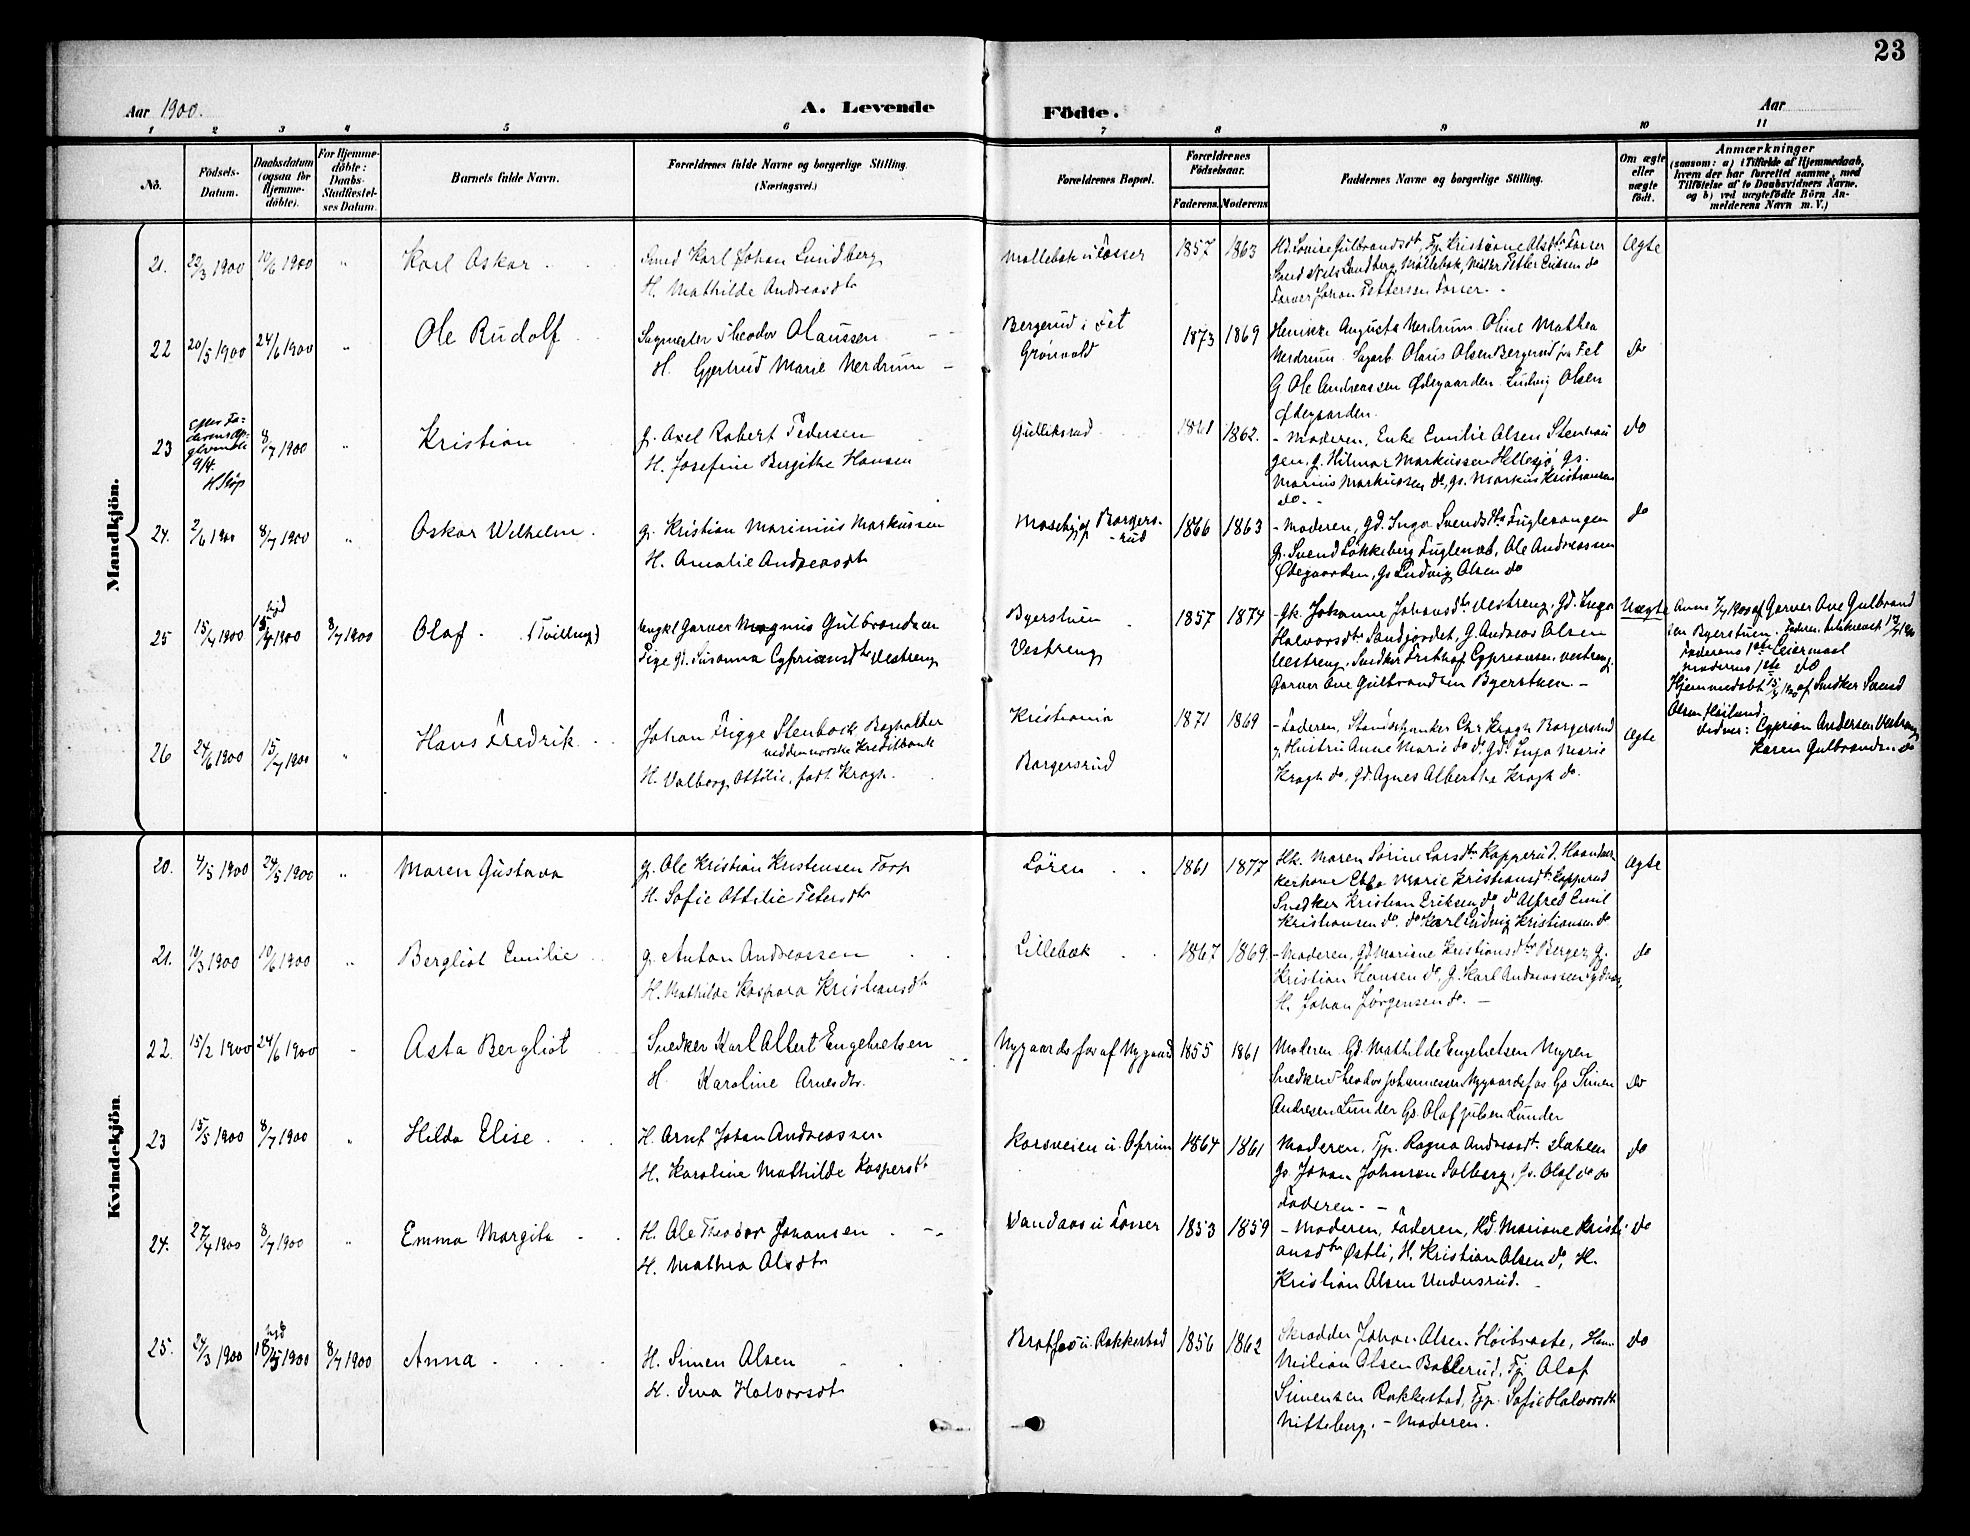 23
Aar 1900.
A. Levende
Födte.
Aar
1 2 3 4 5 6 7 8 9 10 11
No.
Födsels-
Datum.
Daabsdatum
(ogsaa for
Hjemme-
döbte).
For Hjemme-
döbte:
Daabs-
Stadfæstel-
ses Datum.
Barnets fulde Navn.
Forældrenes fulde Navne og borgerlige Stilling.
(Næringsvei.)
Forældrenes Bopæl.
Forældrenes
Födselsaar.
Faderens. Moderens.
Faddernes Navne og borgerlige Stilling.
Om ægte
eller
uægte
födt.
Anmærkninger
(saasom: a) i Tilfælde af Hjemmedaab,
hvem der har forrettet samme, med
Tilföielse af to Daabsvidners Navne,
og b) ved uægtefödte Börn An-
melderens Navn m. V.)
Mandkjön.
21. 22/3 1900 10/6 1900 " Karl Oskar
Smed Karl Johan Lundberg
H. Mathilde Andreasdtr
Møllebæk u Fosser
1857 1863
Hd. Louise Gulbrandsdtr, Tp. Kristiane Olsdtr Fosser
Smed Nils Lundberg Møllebæk, Petter Eriksen do
Farver Johan Pettersen Fosser
Ægte
22 20/5 1900 24/6 1900 " Ole Rudolf
Sagmester Theodor Olaussen
H. Gjertrud Marie Nerdrum
Bergerud i Fet
Grønvold
1873 1869
Henrikke Augusta Nerdrum. Oline Mathea
Nerdrum. Sagarb. Olaus Olsen Bergerud fra Fet
G Ole Andreassen Ødegaarden. Ludvig Olsen
Ødegaarden.
do
23 Efter Fa-
derens Op-
givende
9/4.
8/7 1900 " Kristian
g. Axel Robert Pedersen
H. Josefine Bergithe Hansen
Gulliksrud
1861 1862.
- Moderen, Enke Emilie Olsen Stenhau
gen, g. Hilmar Markussen Hellesjø, gs.
Marius Markussen do, gs. Markus Kristiansen
do.
do
24. 2/6 1900 8/7 1900 " Oskar Wilhelm
g. Kristian Marinius Markussen
H. Amalie Andreasdtr
Mosehj af Borgers-
rud
1866 1863
- Moderen, Gd. Inga Svendsdtr Fuglevangen
g. Svend Løkkeberg Fuglenæb, Ole Andreassen
Ødegaarden, Gs Ludvig Olsen do
do
25 15/4 1900 hjd 15/4 1900 8/7 1900 Olaf (Tvilling)
Ungkl Garver Magnus Gulbrandsen
Pige Gd. Susanna Cypriansdtr Vestreng
Byerstuen
Vestreng
1857 1874
- Gk. Johanne Johansdtr Vestreng. Gd. Inga
Halvorsdtr Sandjordet, G. Andreas Olsen
Vestreng, Snedker Frithjof Cypriansen, Vestreng,
Garver Ove Gulbrandsen Byerstuen. -
Uægte
Anm 7/4 1900 af Garver Ove Gulbrand
sen Byerstuen.
Faderens 1ste Leiermaal
Moderens 1ste do
Hjemmedøbt 15/4 1900 af Snedker Svend
Olsen Høilund.
Vidner: Cyprian Andersen Vestreng
Karen Gulbrandsen do
26 24/6 1900 15/7 1900 " Hans Fredrik
Johan Frigge Stenbock Bogholder
ved den norske Kreditbank
H. Valborg Ottilie, født Krogh.
Kristiania
Borgersrud
1871 1869
- Faderen, Chr Krogh Borgersrud
g, Hustru Anne Marie do do Gd. Inga Marie
Krogh do, Gd. Agnes Alberthe Krogh do.
Ægte
Kvindekjön.
20. 4/5 1900 24/5 1900 " Maren Gustava
g. Ole Kristian Kristensen Torp
H. Sofie Ottilie Petersdtr
Løren
1861 1877
Hk. Maren Sørine Larsdtr Kopperud. Haandvær
kerkone Ebba Marie Kristiansdtr Kopperud
Snedker Kristian Eriksen do, do Alfred Emil
Kristiansen do. do Karl Ludvig Kristiansen do
Ægte
21. 10/3 1900 10/6 1900 " Bergliot Emilie
g. Anton Andreassen
H. Mathilde Kaspara Kristiansdtr
Lillebæk
1867 1869.
- Moderen, Gd. Mariane Kristiansdtr Berger, g.
Kristian Hansen do, g. Karl Andreassen
H. Johan Jørgensen do. -
do
22. 15/2 1900 24/6 1900 Asta Bergliot
Snedker Karl Albert Engebretsen
H. Karoline Arnesdtr.
Nygaardsfos af Nygaard
1855 1861
Moderen Gd. Mathilde Engebretsen Myren
Snedker Theodor Johannessen Nygaardsfos Gs Simen
Andresen Lunder Gs. Olaf Julsen Lunder
do
23 15/5 1900 8/7 1900 " Hilda Elise
H. Arnt Johan Andreassen
H. Karoline Mathilde Kaspersdtr
Korsveien u. Ofrim
1864 1861
Moderen, Tp. Ragna Andreasdtr. Dahlen
Gs. Johan Johnsen Solberg, Gs. Olaf do do
Faderen. -
do
24. 27/4 1900 8/7 1900 " Emma Margita
H. Ole Theodor Johansen
H. Mathea Olsdtr
Sandaas u Fosser
1853 1859
- Moderen, Faderen, Hd. Mariane Kristi-
ansdtr Østli, H. Kristian Olsen do, H.
Kristian Olsen Undersrud.
do
25. 24/3 1900 hjd 18/5 1900 8/7 1900 Anna
H. Simen Olsen
H. Inva Halvorsdtr
Bratfos u. Rakkestad
1856 1862
Skrædder Johan Olsen Høibraate,
Milian Olsen Bøllerud, Tj. Olaf
Simensen Rakkestad, Tp. Sofie Halvorsdtr
Nitteberg, - Moderen.
do